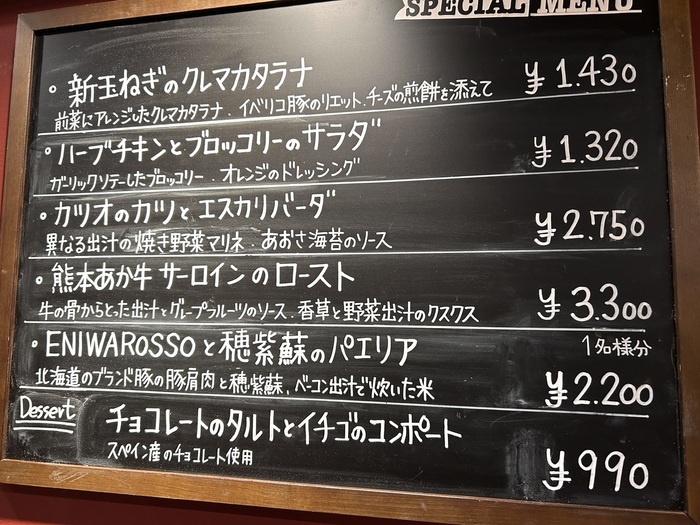 SPECIAL MENU
・新玉ねぎのクレマカタラナ ¥1.430
前菜にアレンジしたクレマカタラナ．イベリコ豚のリエット．チーズの煎餅を添えて
・ハーブチキンとブロッコリーのサラダ ¥1.320
ガーリックソテーしたブロッコリー．オレンジのドレッシング
・カツオのカツとエスカリバーダ ¥2.750
異なる出汁の焼き野菜マリネ．あおさ海苔のソース
・熊本あか牛 サーロインのロースト ¥3.300
牛の骨からとった出汁とグレープフルーツのソース．香草と野菜出汁のクスクス
・ENIWAROSSOと穂紫蘇のパエリア 1名様分
北海道のブランド豚の豚肩肉と穂紫蘇、ベーコン出汁で炊いた米 ¥2.200
Dessert チョコレートのタルトとイチゴのコンポート
スペイン産のチョコレート使用 ¥990